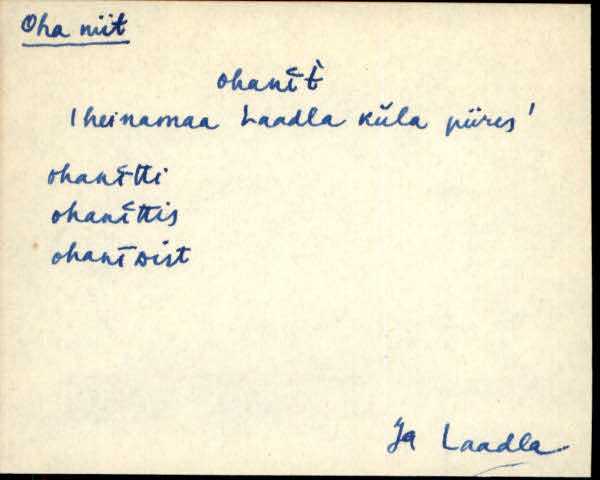 Oha niit
ohanī̆t̀
'heinamaa Laadla küla piires'
ohanī̆tti
ohanī̆ttis
ohanīDist
Ja Laadla